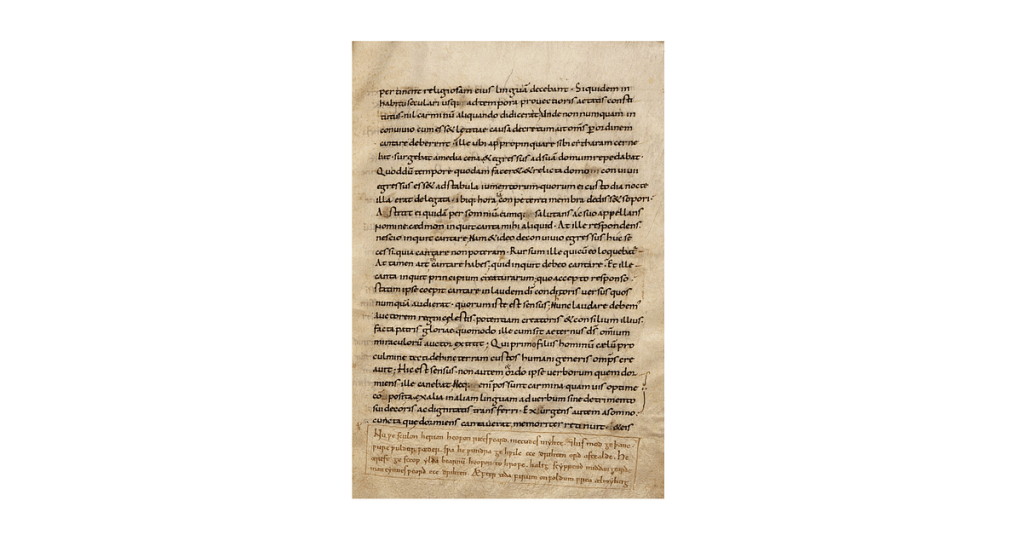 pertinent religiosam eius linguā decebant · Siquidem in
habitu seculari usq; ad tempora prouectioris aetatis consti
tutus · nil carminū aliquando didicerat; Unde non numquam in
conuiuio cum ess& l&itiae causa decretum ut omš per ordinem
cantare deberent · ille ubi appropinquare sibi citharam cerne
bat · surgebat a media cena & egressus ad suā domum repedabat ·
Quod dū tempore quodam facer& & relicta domo conuiuii
egressus ess& ad stabula iumentorum · quorum ei custodia nocte
illa erat delegata · ibiq; hora conpetenti membra dediss& sopori ·
Astitit ei quidā per somniū eumq; salutans ac suo appellans
nomine cædmon inquit canta mihi aliquid · At ille respondens
nescio inquit cantare; Nam & ideo de conuiuio egressus huc se
cessi, quia cantare non poteram · Rursum ille qui cū eo loquebat
At tamen ait cantare habes; quid inquit debeo cantare · Et ille
canta inquit principium creaturarum; quo accepto responso
statim ipse coepit cantare in laudem dī conditoris uersus quos
numquā audierat · quorum iste est sensus; Nunc laudare debem
auctorem regni celestis · potentiam creatoris & consilium illius ·
facta patris gloriae quomodo ille cum sit aeternus dš omium
miraculorū auctor extitit; Qui primo filiis hominū cælū pro
culmine tecti dehinc terram custos humani generis omps cre
auit; Hic est sensus · non autem ordo ipse uerborum quem dor
miens ille canebat; Neq; eni possunt carmina quamuis optime
cōposita ex alia in aliam linguam ad uerbum sine detrimento
sui decoris ac dignitatis transferri · Exurgens autem a somno ·
cuncta que dormiens cantauerat memoriter retinuit · & eis
Nu þe sculan herian heofon
he
heofon to hrofe · halig scyppend middangeard
ece drihten ·